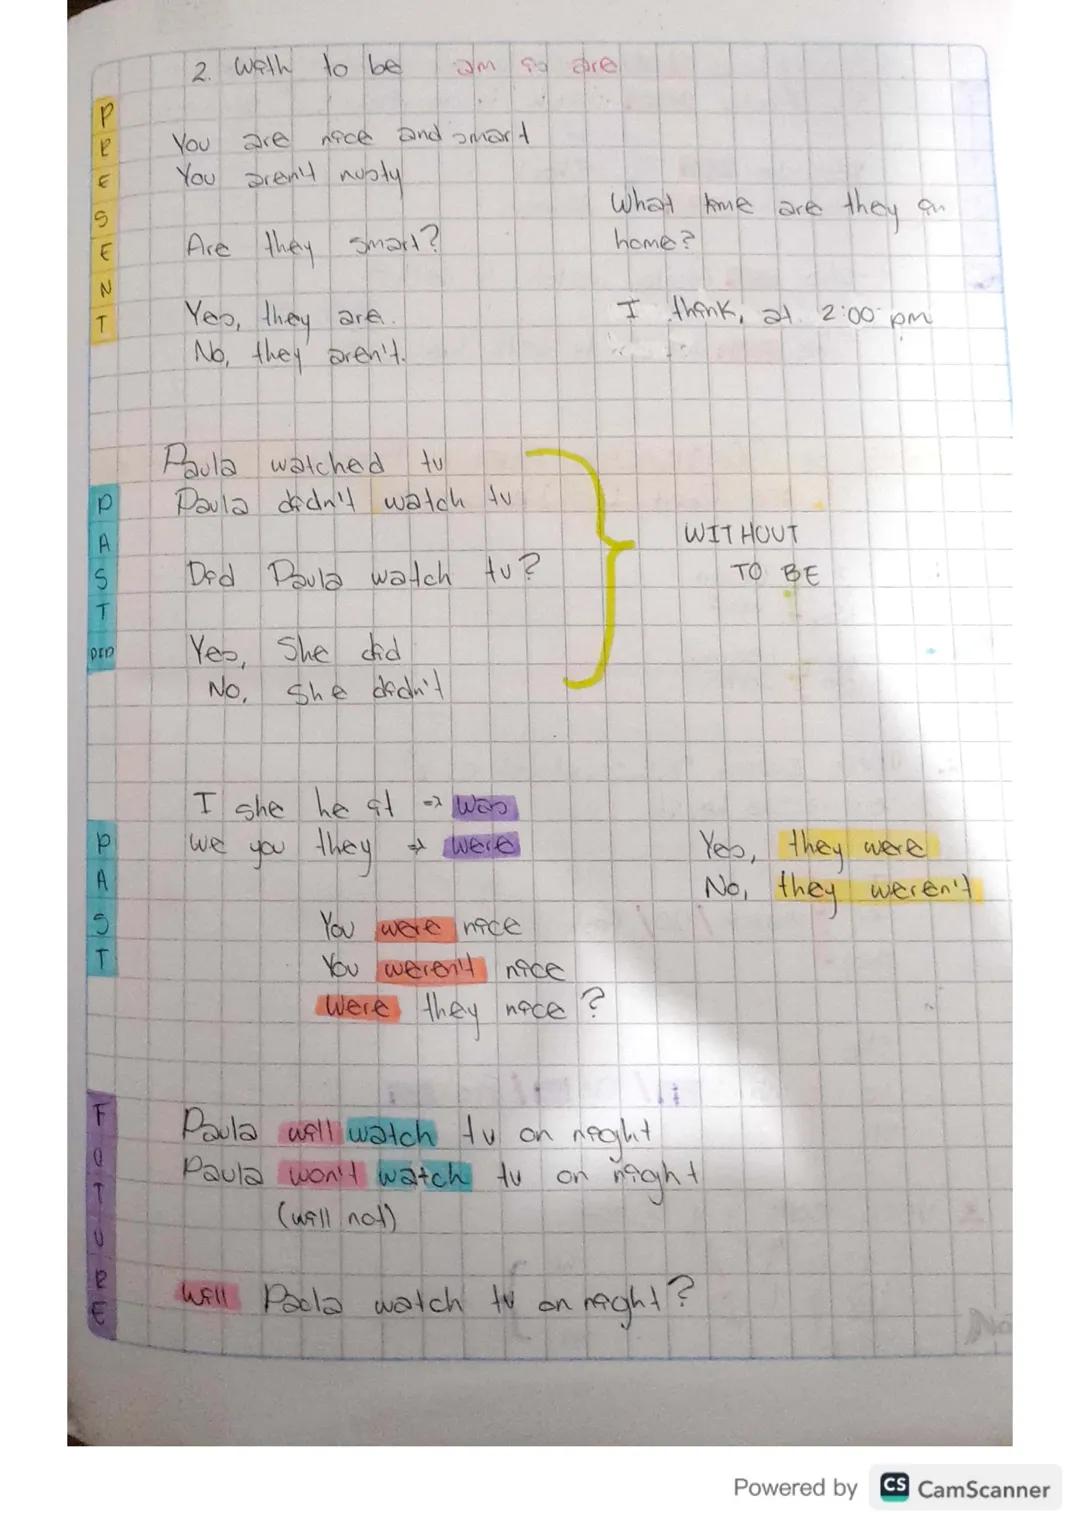 2. With to be am is are
PRESENT
You are nice and smart
You aren't nosty
Are they smart?
Yes, they are.
No, they aren't.
What time are they in
home?
I think, at 2:00 pm
PAST
DID
Paula watched tv
Paula didn't watch tv
Did Paula watch tv?
Yes, She did
No, she didn't
WITHOUT
TO BE
PAST
I she he it => was
We you they => were
You were nice
You weren't nice
Were they nice?
Yes, they were
No, they weren't
FUTURE
Paula will watch tv on night
Paula won't watch tv on night
(will not)
Will Paola watch tv on night?
No
Powered by CS CamScanner